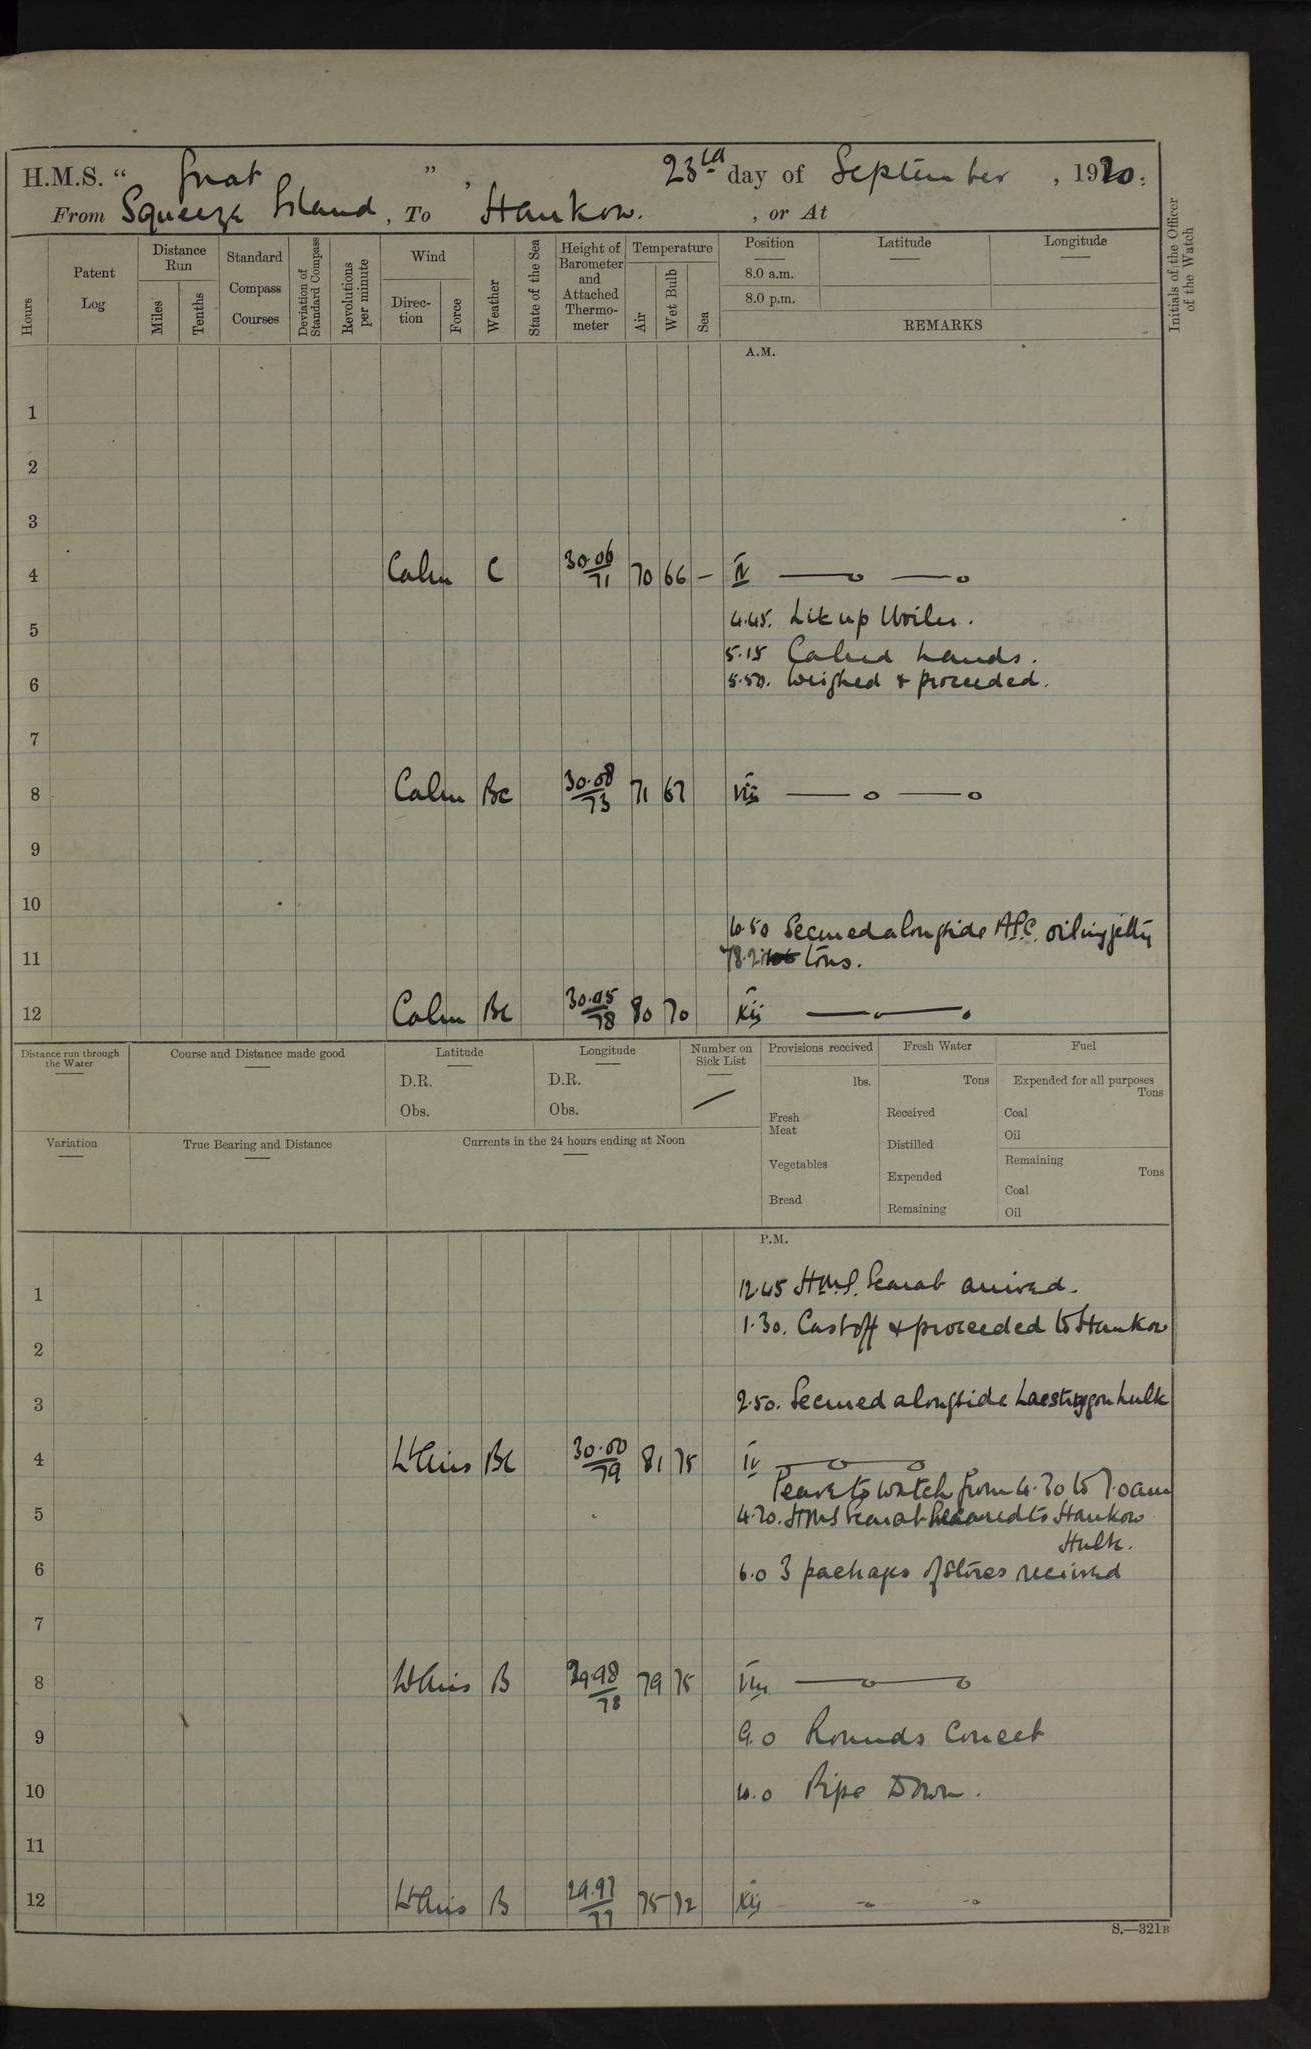 H.M.S. “ Gnat ” , 23rd day of September , 1920.
From Squeeze Island , To Hankow. , or At
Hours
Patent Log
Distance Run
Miles
Tenths
Standard Compass Courses
Deviation of Standard Compass
Revolutions per minute
Wind
Direction
Force
Weather
State of the Sea
Height of Barometer and Attached Thermometer
Temperature
Air
Wet Bulb
Sea
Position
8.0 a.m.
8.0 p.m.
Latitude
Longitude
REMARKS
Initials of the Officer of the Watch
A.M.
1
2
3
4 Calm C 30.06/71 70 66 — IV
4.45. Lit up boiler.
5
5.15 Called hands.
5.50. Weighed & proceeded.
6
7
8 Calm Bc 30.08/73 71 67 VIII
9
10
10.50 Secured alongside A.P.C. oiling jetty
11 tons.
12 Calm Bc 30.05/78 80 70 XII
Distance run through the Water
Course and Distance made good
Latitude
D.R.
Obs.
Longitude
D.R.
Obs.
Number on Sick List
/
Provisions received
lbs.
Fresh Meat
Vegetables
Bread
Fresh Water
Tons
Received
Distilled
Expended
Remaining
Fuel
Expended for all purposes
Tons
Coal
Oil
Remaining
Tons
Coal
Oil
Variation
True Bearing and Distance
Currents in the 24 hours ending at Noon
P.M.
1 12.45 H.M.S. Scarab arrived.
1.30. Cast off & proceeded to Hankow
2
3 2.50. Secured alongside Laestrygon hulk
4 Lt Airs Bc 30.00/79 81 75 IV
Leave to watch from 4.30 to 7.0am
5 4.30. HMS Scarab secured to Hankow
Hulk.
6 6.0 3 packages of stores received
7
8 Lt Airs B 29.98/78 79 75 VIII
9 9.0 Rounds Correct
10 10.0 Pipe Down.
11
12 Lt Airs B 29.97/77 75 72 XII
S.—321B